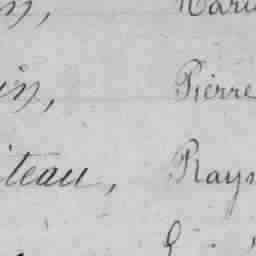 n, Marie
in, Pierre
teau, Raym